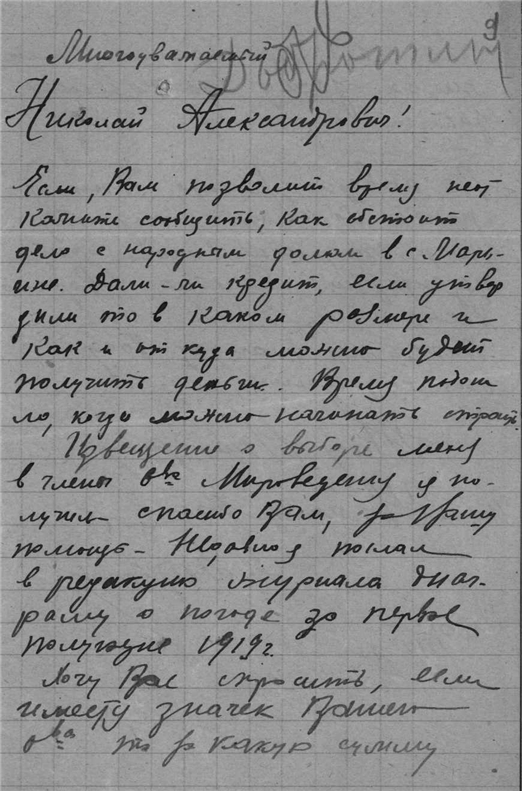 9
Многоуважаемый
Николай Александрович!
Если, Вам позволит время
сообщить, как обстоит
дело с народным домом в с Марь-
ине. Дали-ли кредит, если утвер
дили то в каком размере и
как и от куда можно будет
получить деньги. Время подош
ло, когда можно начинать строить.
Извещение о выборе меня
в члены о-ва Мироведения я по-
лучил спасибо Вам, за Вашу
помощь - я послал
в редакцию журнала диаг-
раму о погоде за первое
полугодие 1919 г.
Хочу Вас спросить, если
значек Вашего
о-ва то за какую сумму